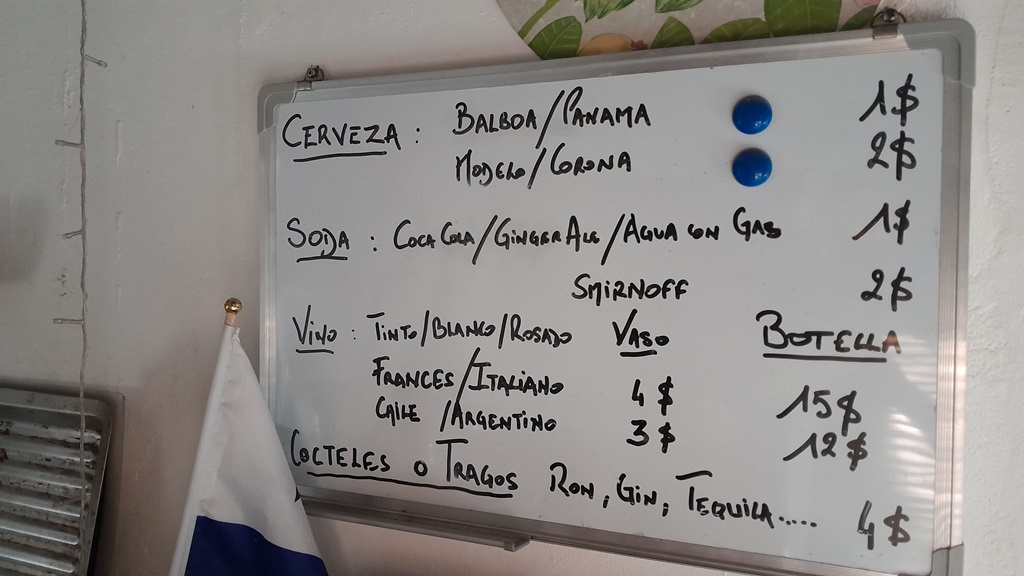 CERVEZA : BALBOA/PANAMA 1$
MODELO/CORONA 2$
SODA : COCA COLA/GINGER ALE/AGUA CON GAS 1$
SMIRNOFF 2$
VINO : TINTO/BLANCO/ROSADO VASO BOTELLA
FRANCES/ITALIANO 4$ 15$
CHILE /ARGENTINO 3$ 12$
COCTELES O TRAGOS RON, GIN, TEQUILA..... 4$